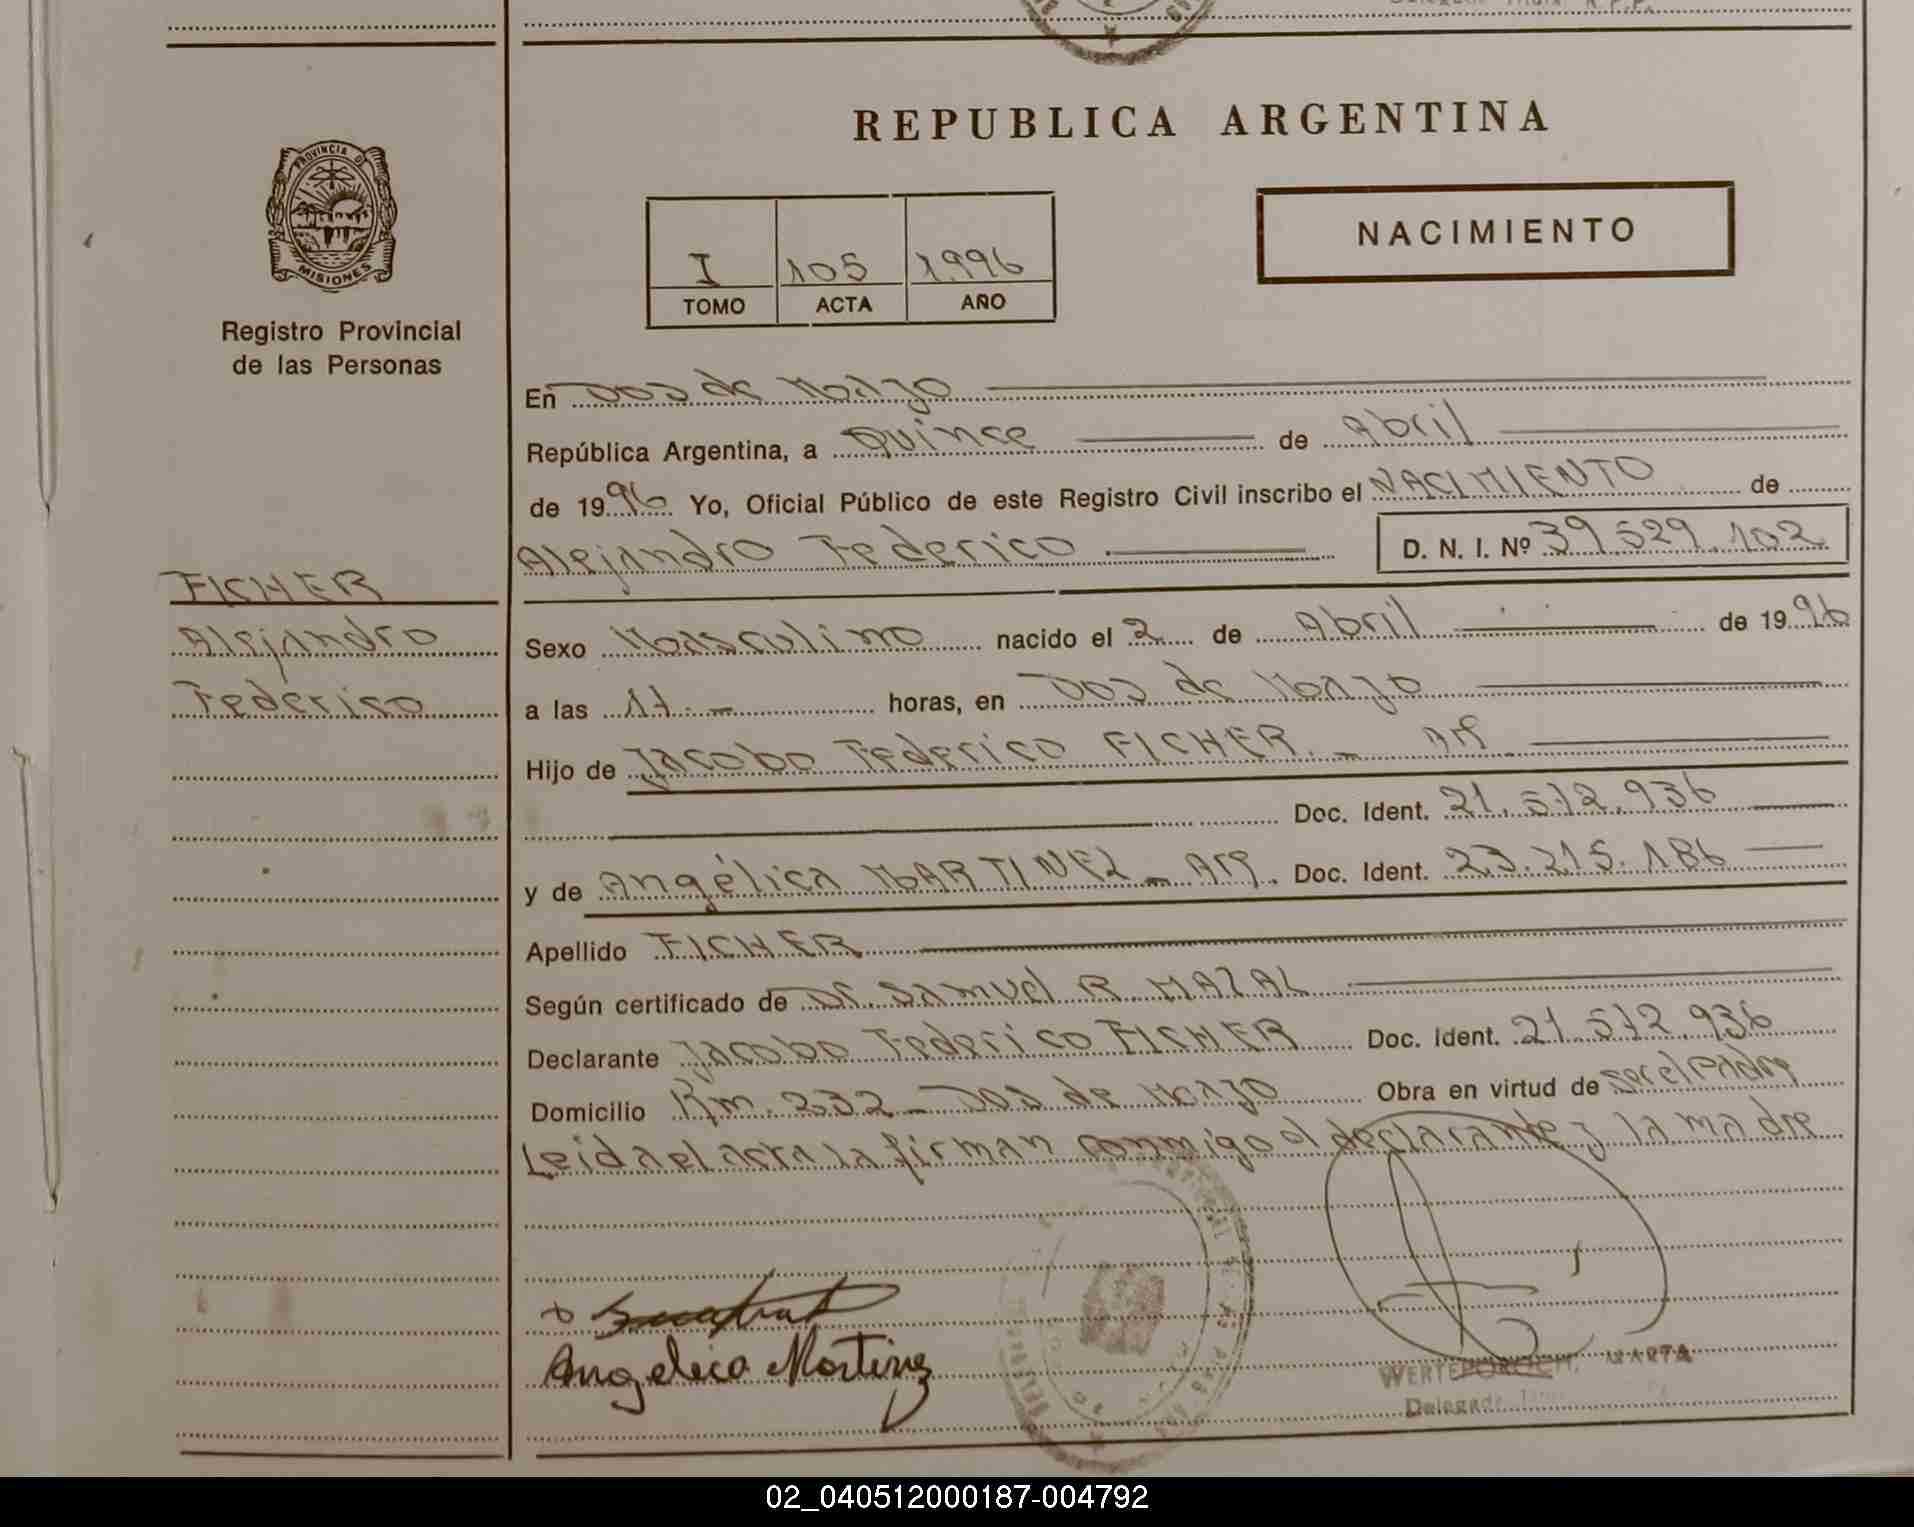 REPUBLICA ARGENTINA
PROVINCIA DE
MISIONES
Registro Provincial
de las Personas
NACIMIENTO
I 105 1996
TOMO ACTA AÑO
En Dos de Mayo
República Argentina, a Quince de Abril
de 1996 Yo, Oficial Público de este Registro Civil inscribo el NACIMIENTO de
Alejandro Federico D. N. I. Nº 39.529.102
FICHER
Alejandro
Federico
Sexo Masculino nacido el 2 de Abril de 1996
a las 17.- horas, en Dos de Mayo
Hijo de Jacobo Federico FICHER.- Ar
Doc. Ident. 21.572.936
y de Angélica MARTINEZ - Ar. Doc. Ident. 23.215.186
Apellido FICHER
Según certificado de Dr. Samuel R MAZAL
Declarante Jacobo Federico FICHER Doc. Ident. 21.572.936
Domicilio Km. 232 - Dos de Mayo Obra en virtud de ser el Padre
Leida el acta la firman conmigo el declarante y la madre
Angelica Martinez
MARTA
Delegada
02_040512000187-004792